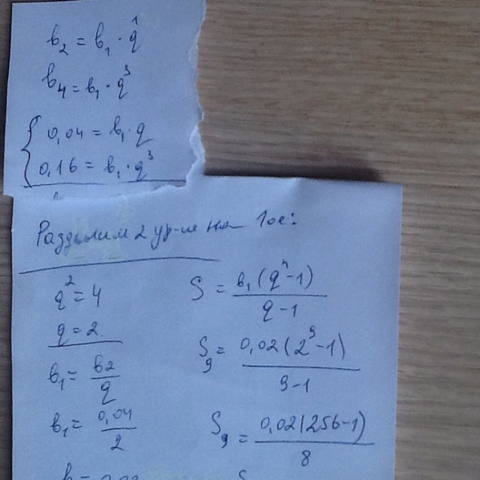 b₂ = b₁ · q¹
b₄ = b₁ · q³
{ 0,04 = b₁ · q
0,16 = b₁ · q³
Разделим 2 ур-е на 1ое:
q² = 4
q = 2
b₁ = b2/q
b₁ = 0,04/2
S = b₁(qⁿ-1)/q-1
S₉ = 0,02(2⁹-1)/9-1
S₉ = 0,02(256-1)/8